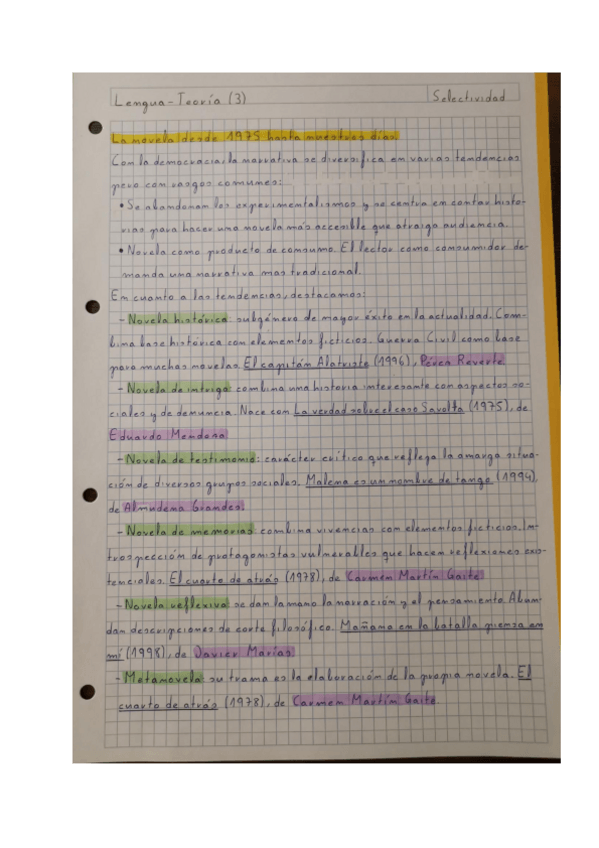 Lengua-Teoría (3)
Selectividad
La novela desde 1975 hasta nuestros días.
Con la democracia la narrativa se diversifica en varias tendencias
pero con rasgos comunes:
• Se abandonan los experimentalismos y se centra en contar histo-
rias para hacer una novela más accesible que atraiga audiencia.
• Novela como producto de consumo. El lector como consumidor de-
manda una narrativa mas tradicional.
En cuanto a las tendencias, destacamos:
- Novela histórica: subgénero de mayor éxito en la actualidad. Com-
bina base histórica con elementos ficticios. Guerra Civil como base
para muchas novelas. El capitán Alatriste (1996), Pérez Reverte
- Novela de intriga: combina una historia interesante con aspectos so-
ciales y de denuncia. Nace con La verdad sobre el caso Savolta (1975), de
Eduardo Mendoza
- Novela de testimonio: carácter crítico que refleja la amarga situa-
ción de diversos grupos sociales. Malena es un nombre de tango (1994),
de Almudena Grandes.
- Novela de memorias: combina vivencias con elementos ficticios. In-
trospección de protagonistas vulnerables que hacen reflexiones exis-
tenciales. El cuarto de atrás (1978), de Carmen Martín Gaite
- Novela reflexiva: se dan la mano la narración y el pensamiento. Abun-
dan descripciones de corte filosófico. Mañana en la batalla piensa en
mí (1998), de Javier Marías.
- Metanovela: su trama es la elaboración de la propia novela. El
cuarto de atrás (1978), de Carmen Martín Gaite